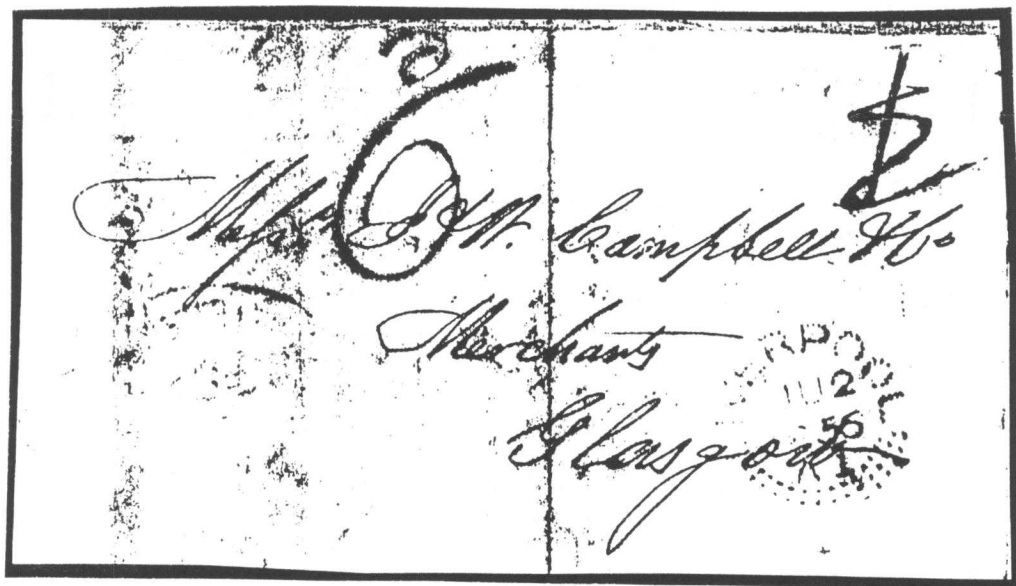 6
Messrs J & W. Campbell & Co
Merchants
Glasgow
2
56